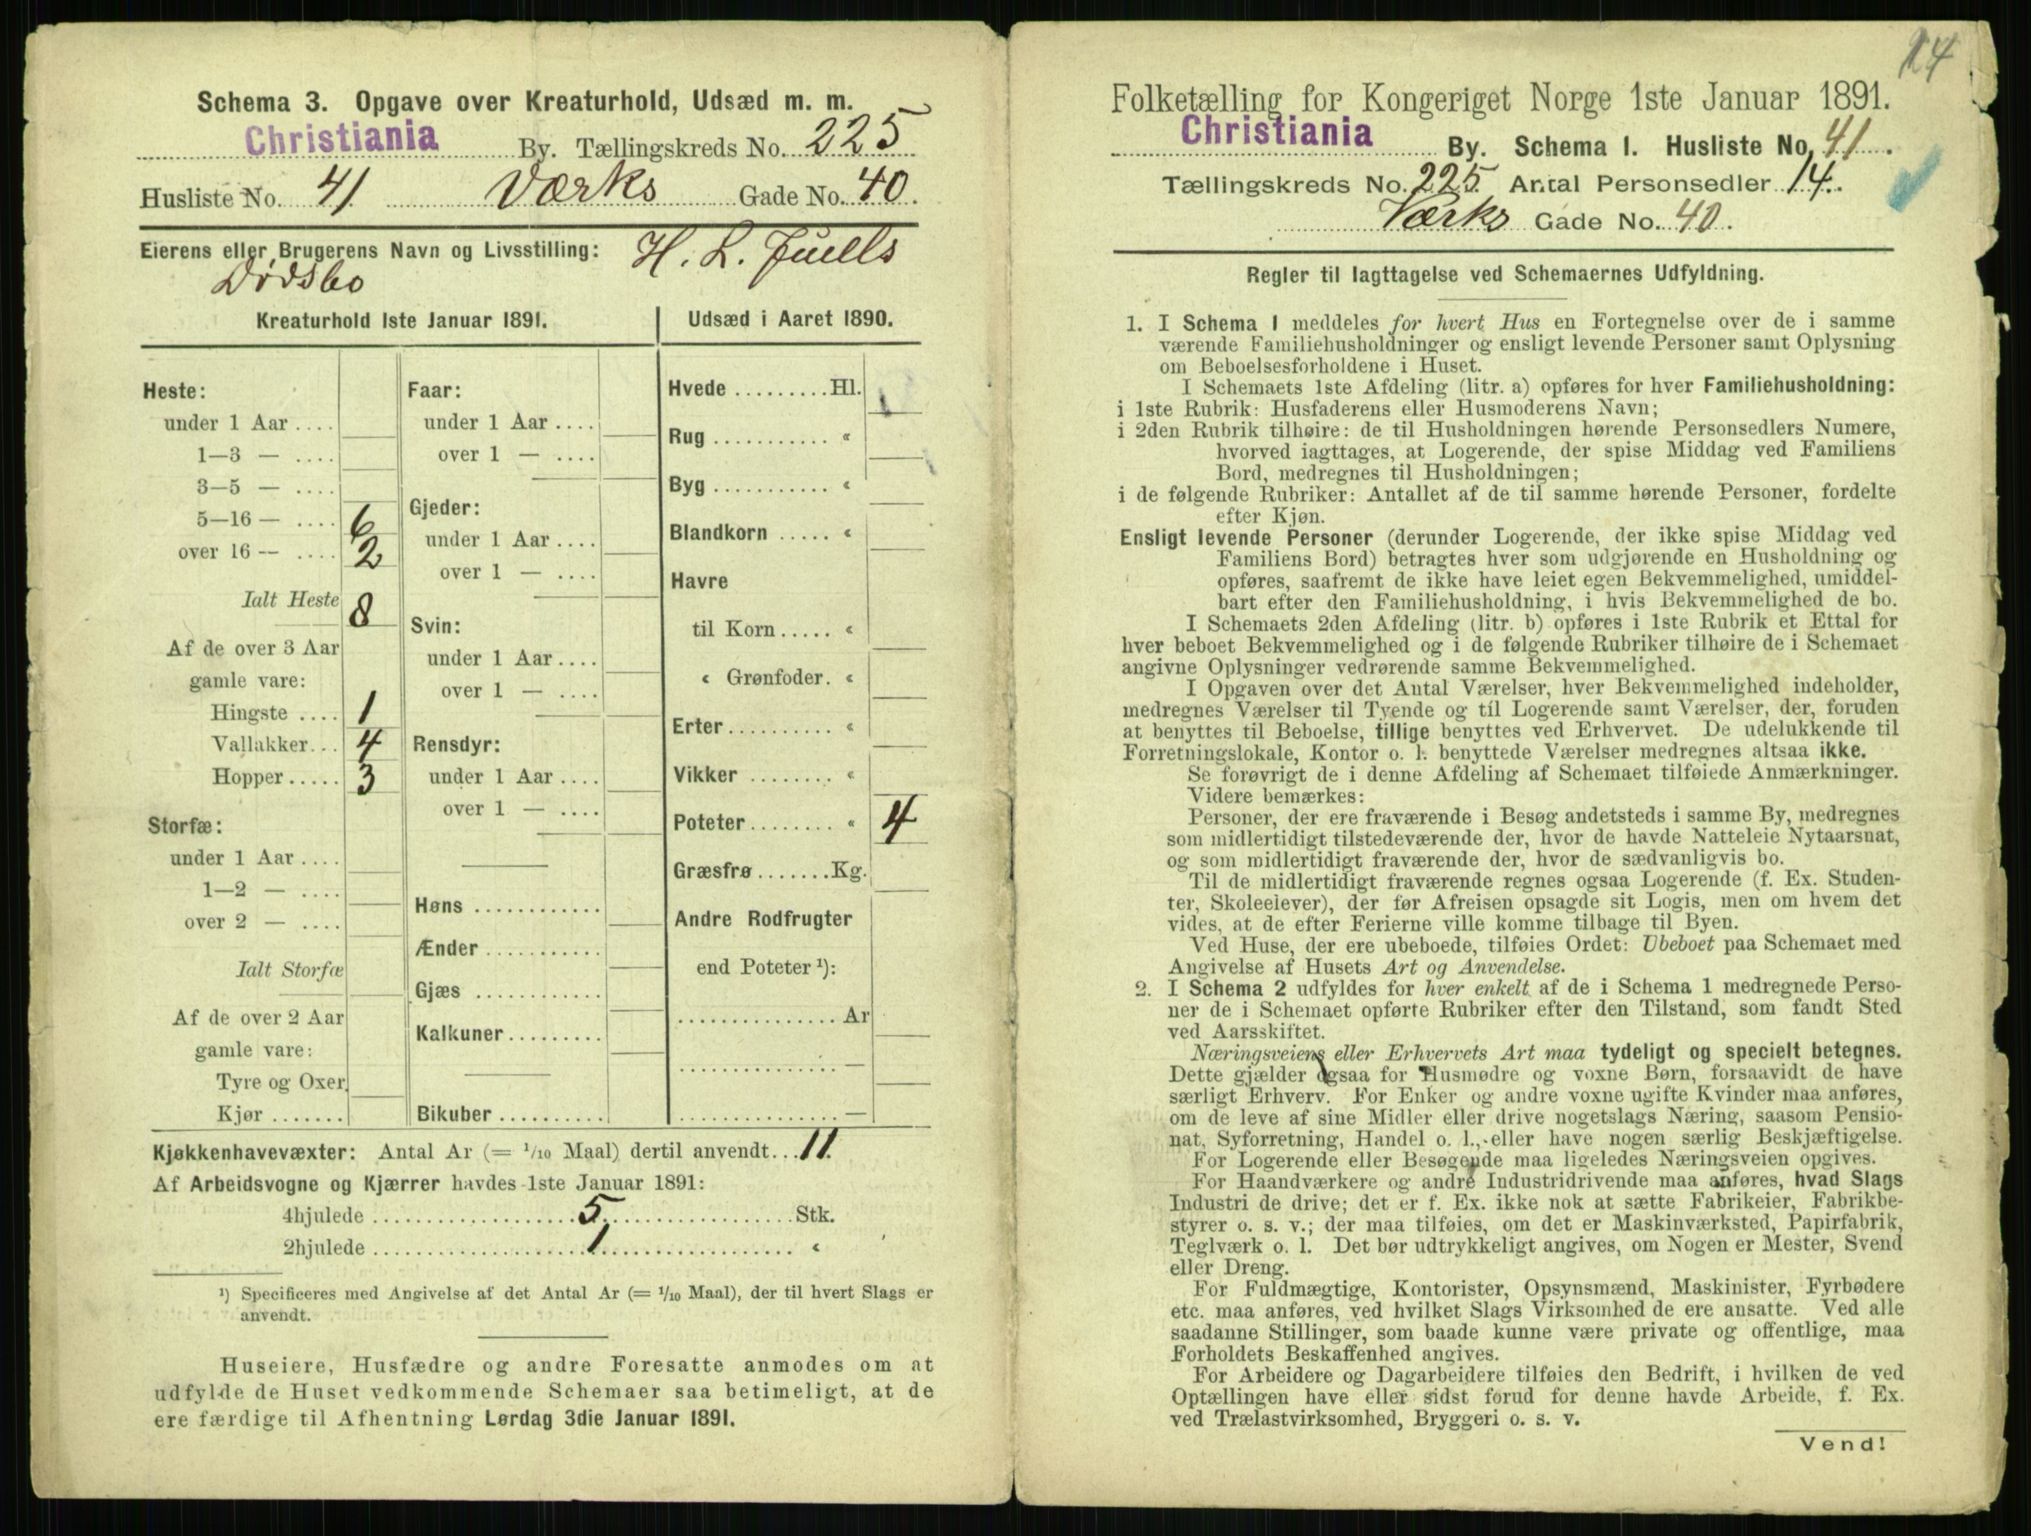 Schema 3. Opgave over Kreaturhold, Udsæd m. m.
Christiania By. Tællingskreds No. 225
Husliste No. 41 Værks Gade No. 40.
Eierens eller Brugerens Navn og Livsstilling: H. L. Juells
Dødsbo
Kreaturhold 1ste Januar 1891.
Heste:
under 1 Aar ....
1—3 — ....
3—5 — ....
5—16 — .... 6
over 16 — .... 2
Ialt Heste 8
Af de over 3 Aar
gamle vare:
Hingste .... 1
Vallakker... 4
Hopper ..... 3
Storfæ:
under 1 Aar ....
1—2 — ....
over 2 — ....
Ialt Storfæ
Af de over 2 Aar
gamle vare:
Tyre og Oxer
Kjør .......
Faar:
under 1 Aar ....
over 1 — ....
Gjeder:
under 1 Aar ....
over 1 — ....
Svin:
under 1 Aar ....
over 1 — ....
Rensdyr:
under 1 Aar ....
over 1 — ....
Høns ............
Ænder ...........
Gjæs ............
Kalkuner.........
Bikuber ..........
Udsæd i Aaret 1890.
Hvede .........Hl.
Rug ........... «
Byg ........... «
Blandkorn ..... «
Havre
til Korn ..... «
« Grønfoder. «
Erter.......... «
Vikker ........ «
Poteter........ « 4
Græsfrø .......Kg.
Andre Rodfrugter
end Poteter ¹):
............... Ar
............... —
............... —
Kjøkkenhavevæxter: Antal Ar (= 1/10 Maal) dertil anvendt... 11.
Af Arbeidsvogne og Kjærrer havdes 1ste Januar 1891:
4hjulede .................. 5 ..................Stk.
2hjulede .................. 1 .................. «
¹) Specificeres med Angivelse af det Antal Ar (= 1/10 Maal), der til hvert Slags er
anvendt.
Huseiere, Husfædre og andre Foresatte anmodes om at
udfylde de Huset vedkommende Schemaer saa betimeligt, at de
ere færdige til Afhentning Lørdag 3die Januar 1891.
24
Folketælling for Kongeriget Norge 1ste Januar 1891.
Christiania By. Schema 1. Husliste No. 41.
Tællingskreds No. 225. Antal Personsedler 14.
Værks Gade No. 40.
Regler til Iagttagelse ved Schemaernes Udfyldning.
1. I Schema 1 meddeles for hvert Hus en Fortegnelse over de i samme
værende Familiehusholdninger og ensligt levende Personer samt Oplysning
om Beboelsesforholdene i Huset.
I Schemaets 1ste Afdeling (litr. a) opføres for hver Familiehusholdning:
i 1ste Rubrik: Husfaderens eller Husmoderens Navn;
i 2den Rubrik tilhøire: de til Husholdningen hørende Personsedlers Numere,
hvorved iagttages, at Logerende, der spise Middag ved Familiens
Bord, medregnes til Husholdningen;
i de følgende Rubriker: Antallet af de til samme hørende Personer, fordelte
efter Kjøn.
Ensligt levende Personer (derunder Logerende, der ikke spise Middag ved
Familiens Bord) betragtes hver som udgjørende en Husholdning og
opføres, saafremt de ikke have leiet egen Bekvemmelighed, umiddel-
bart efter den Familiehusholdning, i hvis Bekvemmelighed de bo.
I Schemaets 2den Afdeling (litr. b) opføres i 1ste Rubrik et Ettal for
hver beboet Bekvemmelighed og i de følgende Rubriker tilhøire de i Schemaet
angivne Oplysninger vedrørende samme Bekvemmelighed.
I Opgaven over det Antal Værelser, hver Bekvemmelighed indeholder,
medregnes Værelser til Tyende og til Logerende samt Værelser, der, foruden
at benyttes til Beboelse, tillige benyttes ved Erhvervet. De udelukkende til
Forretningslokale, Kontor o. l. benyttede Værelser medregnes altsaa ikke.
Se forøvrigt de i denne Afdeling af Schemaet tilføiede Anmærkninger.
Videre bemærkes:
Personer, der ere fraværende i Besøg andetsteds i samme By, medregnes
som midlertidigt tilstedeværende der, hvor de havde Natteleie Nytaarsnat,
og som midlertidigt fraværende der, hvor de sædvanligvis bo.
Til de midlertidigt fraværende regnes ogsaa Logerende (f. Ex. Studen-
ter, Skoleelever), der før Afreisen opsagde sit Logis, men om hvem det
vides, at de efter Ferierne ville komme tilbage til Byen.
Ved Huse, der ere ubeboede, tilføies Ordet: Ubeboet paa Schemaet med
Angivelse af Husets Art og Anvendelse.
2. I Schema 2 udfyldes for hver enkelt af de i Schema 1 medregnede Perso-
ner de i Schemaet opførte Rubriker efter den Tilstand, som fandt Sted
ved Aarsskiftet.
Næringsveiens eller Erhvervets Art maa tydeligt og specielt betegnes.
Dette gjælder ogsaa for Husmødre og voxne Børn, forsaavidt de have
særligt Erhverv. For Enker og andre voxne ugifte Kvinder maa anføres,
om de leve af sine Midler eller drive nogetslags Næring, saasom Pensio-
nat, Syforretning, Handel o. l., eller have nogen særlig Beskjæftigelse.
For Logerende eller Besøgende maa ligeledes Næringsveien opgives.
For Haandværkere og andre Industridrivende maa anføres, hvad Slags
Industri de drive; det er f. Ex. ikke nok at sætte Fabrikeier, Fabrikbe-
styrer o. s. v.; der maa tilføies, om det er Maskinværksted, Papirfabrik,
Teglværk o. l. Det bør udtrykkeligt angives, om Nogen er Mester, Svend
eller Dreng.
For Fuldmægtige, Kontorister, Opsynsmænd, Maskinister, Fyrbødere
etc. maa anføres, ved hvilket Slags Virksomhed de ere ansatte. Ved alle
saadanne Stillinger, som baade kunne være private og offentlige, maa
Forholdets Beskaffenhed angives.
For Arbeidere og Dagarbeidere tilføies den Bedrift, i hvilken de ved
Optællingen have eller sidst forud for denne havde Arbeide, f. Ex.
ved Trælastvirksomhed, Bryggeri o. s. v.
Vend!